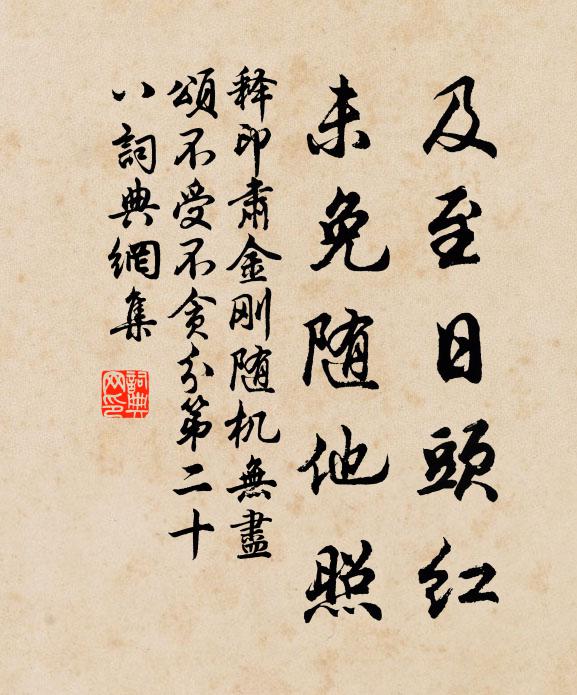 及至日頭红
未免随他照
释印肃金刚随机無盡
頌不受不贪分第二十
八詞典網集
詞典
网印